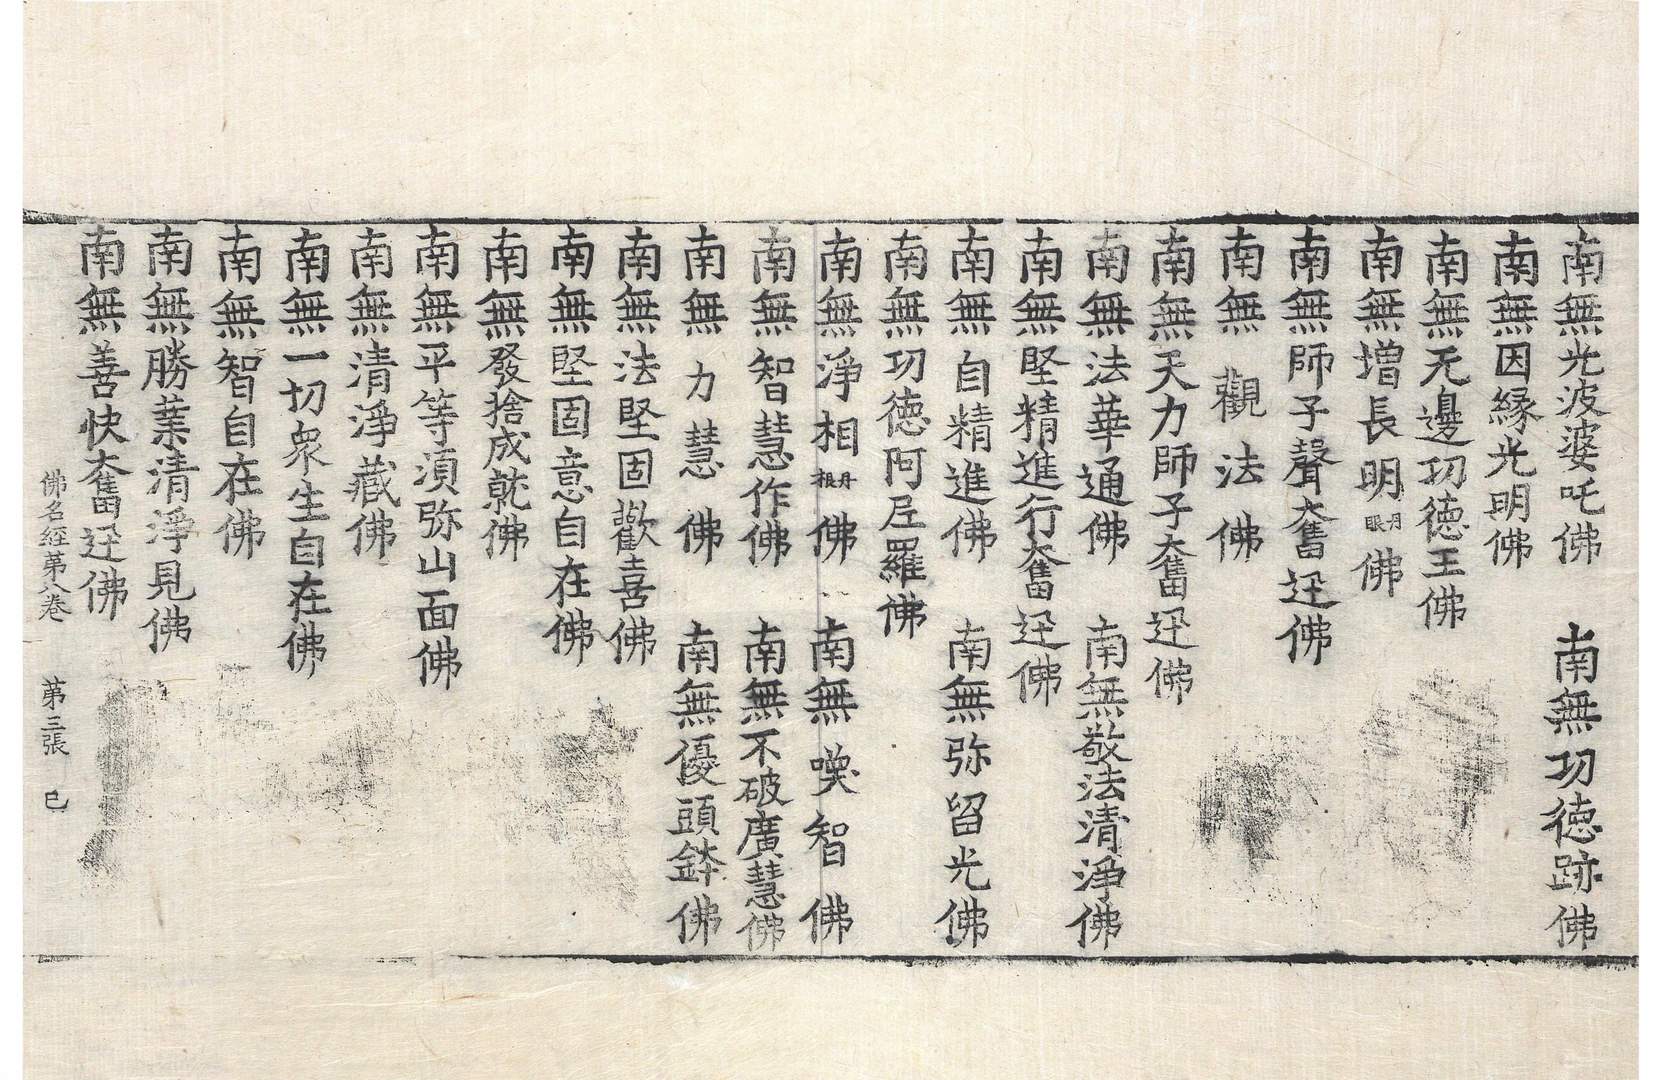 南無光波婆吒佛　南無功德跡佛
南無因緣光明佛
南無无邊功德王佛
南無增長明丹眼佛
南無師子聲奮迅佛
南無觀法佛
南無天力師子奮迅佛
南無法華通佛　南無敬法清淨佛
南無堅精進行奮迅佛
南無自精進佛　南無弥留光佛
南無功德阿尼羅佛
南無淨相丹根佛　南無嘆智佛
南無智慧作佛　南無不破廣慧佛
南無力慧佛　南無優頭鉢佛
南無法堅固歡喜佛
南無堅固意自在佛
南無發捨成就佛
南無平等湏弥山面佛
南無清淨藏佛
南無一切衆生自在佛
南無智自在佛
南無勝業清淨見佛
南無善快奮迅佛
佛名經第八卷　第三張　巳